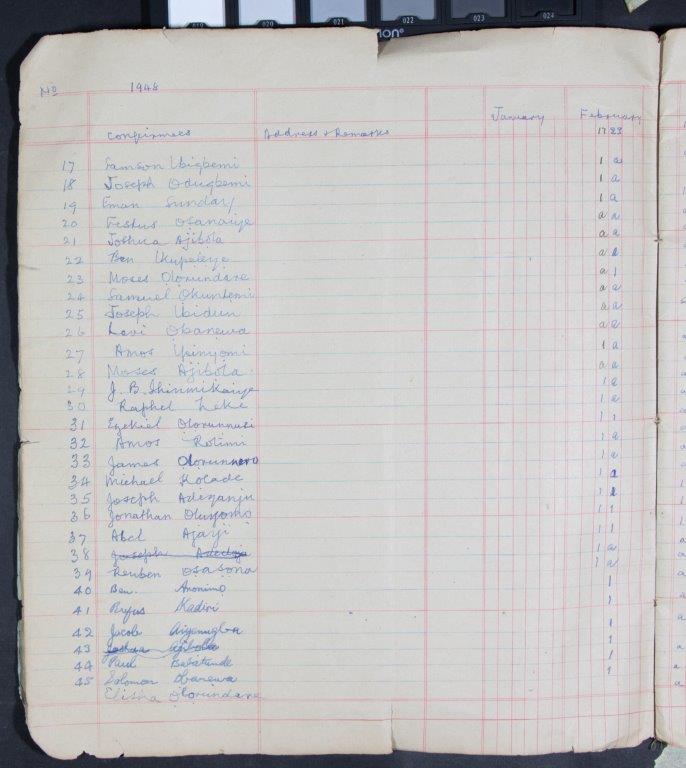 019 020 021 022 023 024
No 1948
January February
Confirmees Address & Remarks 17 23
17 Samson Ibigbemi 1 a
18 Joseph Odugbemi 1 a
19 Eman Sunday 1 a
20 Festus Osanaiye a a
21 Joshua Ajibola a a
22 Ben Ikupeleye a
23 Moses Olorundare a 1
24 Samuel Okunbemi a a
25 Joseph Ibidun a a
26 Levi Obanewa a a
27 Amos 1 a
28 Moses Ajibola a a
29 J. B. Ihinmikaiye 1 a
30 Raphel Leke 1 a
31 Ezekiel Olorunnusi 1 1
32 Amos Rotimi 1 a
33 James 1 a
34 Michael Kolade 1
35 Joseph Adeyanju 1
36 Jonathan Oluyomo 1 1
37 Abel Ajayi 1 1
38 Joseph Adedoja 1 a
39 Reuben Osasona 1 a
40 Ben. Anonimo 1
41 Rufus Kadiri 1
42 Jacob 1
43 Joshua Ajibola 1
44 Paul Babatunde 1
45 Solomon Obanewa 1
Elisha Olorundare